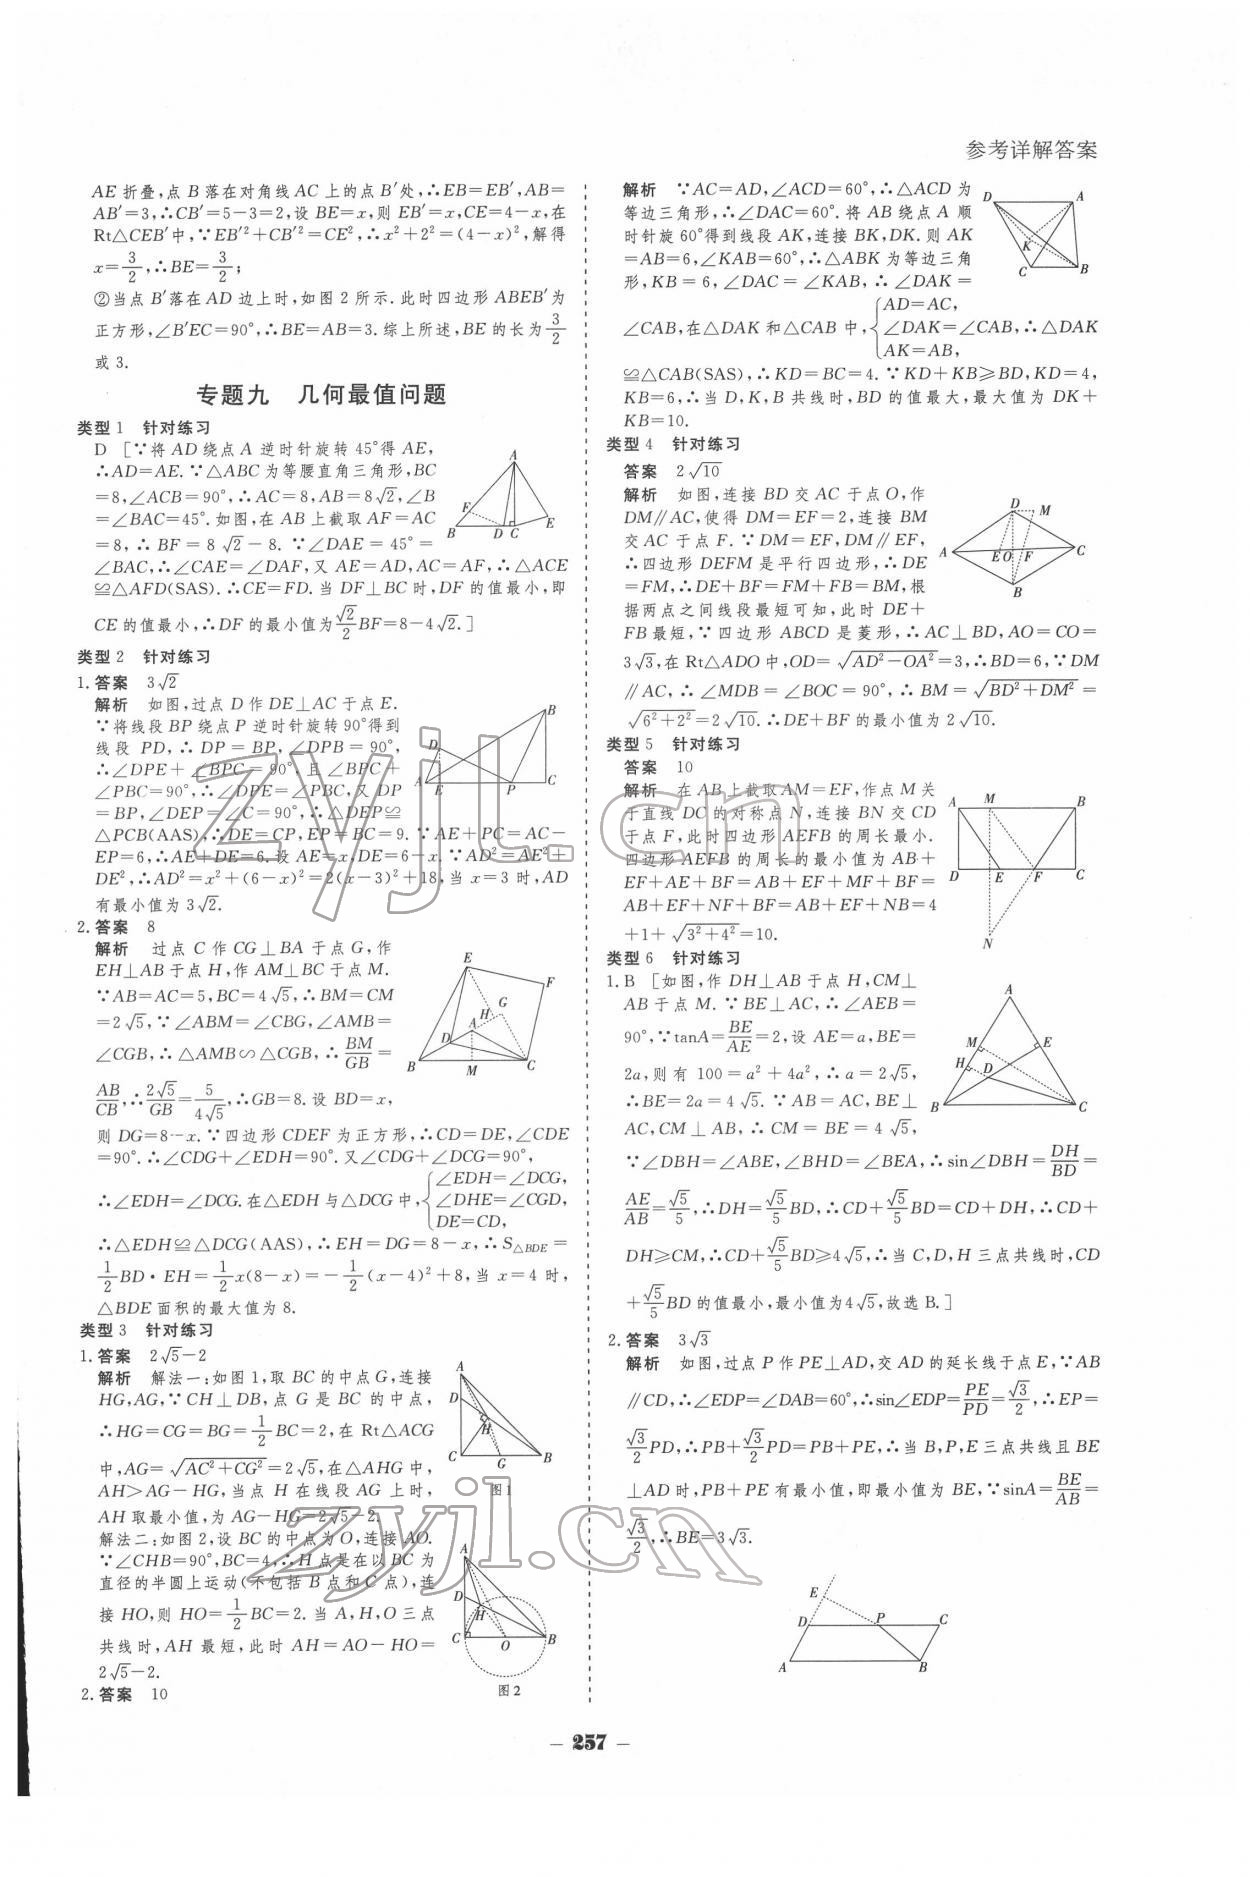 参考详解答案
AE折叠,点B落在对角线AC上的点B′处,∴EB=EB′,AB=
AB′=3,∴CB′=5-3=2,设BE=x,则EB′=x,CE=4-x,在
Rt△CEB′中,∵EB′²+CB′²=CE²,∴x²+2²=(4-x)²,解得
x=3/2,∴BE=3/2;
②当点B′落在AD边上时,如图2所示.此时四边形ABEB′为
正方形,∠B′EC=90°,∴BE=AB=3.综上所述,BE的长为3/2
或3.
专题九 几何最值问题
类型1 针对练习
D [∵将AD绕点A逆时针旋转45°得AE,
∴AD=AE.∵△ABC为等腰直角三角形,BC
=8,∠ACB=90°,∴AC=8,AB=8√2,∠B
=∠BAC=45°.如图,在AB上截取AF=AC
=8,∴BF=8√2-8.∵∠DAE=45°=
∠BAC,∴∠CAE=∠DAF,又AE=AD,AC=AF,∴△ACE
≌△AFD(SAS).∴CE=FD.当DF⊥BC时,DF的值最小,即
CE的值最小,∴DF的最小值为√2/2BF=8-4√2.]
A
F
B D C E
类型2 针对练习
1.答案 3√2
解析 如图,过点D作DE⊥AC于点E.
∵将线段BP绕点P逆时针旋转90°得到
线段PD,∴DP=BP,∠DPB=90°,
∴∠DPE+∠BPC=90°.且∠BPC+
∠PBC=90°,∴∠DPE=∠PBC,又DP
=BP,∠DEP=∠C=90°,∴△DEP≌
△PCB(AAS),∴DE=CP,EP=BC=9.∵AE+PC=AC-
EP=6,∴AE+DE=6.设AE=x,DE=6-x.∵AD²=AE²+
DE²,∴AD²=x²+(6-x)²=2(x-3)²+18,当x=3时,AD
有最小值为3√2.
B
D
A E P C
2.答案 8
解析 过点C作CG⊥BA于点G,作
EH⊥AB于点H,作AM⊥BC于点M.
∵AB=AC=5,BC=4√5,∴BM=CM
=2√5,∵∠ABM=∠CBG,∠AMB=
∠CGB,∴△AMB∽△CGB,∴BM/GB=
AB/CB,∴2√5/GB=5/4√5,∴GB=8.设BD=x,
则DG=8-x.∵四边形CDEF为正方形,∴CD=DE,∠CDE
=90°.∴∠CDG+∠EDH=90°.又∠CDG+∠DCG=90°,
∴∠EDH=∠DCG.在△EDH与△DCG中,{∠EDH=∠DCG,
∠DHE=∠CGD,
DE=CD,
∴△EDH≌△DCG(AAS),∴EH=DG=8-x,∴S△BDE=
1/2BD·EH=1/2x(8-x)=-1/2(x-4)²+8,当x=4时,
△BDE面积的最大值为8.
E
F
G
H
A
D
B M C
类型3 针对练习
1.答案 2√5-2
解析 解法一:如图1,取BC的中点G,连接
HG,AG,∵CH⊥DB,点G是BC的中点,
∴HG=CG=BG=1/2BC=2,在Rt△ACG
中,AG=√AC²+CG²=2√5,在△AHG中,
AH>AG-HG,当点H在线段AG上时,
AH取最小值,为AG-HG=2√5-2.
解法二:如图2,设BC的中点为O,连接AO.
∵∠CHB=90°,BC=4,∴H点是在以BC为
直径的半圆上运动(不包括B点和C点),连
接HO,则HO=1/2BC=2.当A,H,O三点
共线时,AH最短,此时AH=AO-HO=
2√5-2.
A
D
H
C G B
图1
A
D
H
C O B
图2
2.答案 10
解析 ∵AC=AD,∠ACD=60°,∴△ACD为
等边三角形,∴∠DAC=60°.将AB绕点A顺
时针旋60°得到线段AK,连接BK,DK.则AK
=AB=6,∠KAB=60°,∴△ABK为等边三角
形,KB=6,∠DAC=∠KAB,∴∠DAK=
∠CAB,在△DAK和△CAB中,{AD=AC,
∠DAK=∠CAB,∴△DAK
AK=AB,
≌△CAB(SAS),∴KD=BC=4.∵KD+KB≥BD,KD=4,
KB=6,∴当D,K,B共线时,BD的值最大,最大值为DK+
KB=10.
D A
K
C B
类型4 针对练习
答案 2√10
解析 如图,连接BD交AC于点O,作
DM∥AC,使得DM=EF=2,连接BM
交AC于点F.∵DM=EF,DM∥EF,
∴四边形DEFM是平行四边形,∴DE
=FM,∴DE+BF=FM+FB=BM,根
据两点之间线段最短可知,此时DE+
FB最短,∵四边形ABCD是菱形,∴AC⊥BD,AO=CO=
3√3,在Rt△ADO中,OD=√AD²-OA²=3,∴BD=6,∵DM
∥AC,∴∠MDB=∠BOC=90°,∴BM=√BD²+DM²=
√6²+2²=2√10.∴DE+BF的最小值为2√10.
D M
A E O F C
B
类型5 针对练习
答案 10
解析 在AB上截取AM=EF,作点M关
于直线DC的对称点N,连接BN交CD
于点F,此时四边形AEFB的周长最小.
四边形AEFB的周长的最小值为AB+
EF+AE+BF=AB+EF+MF+BF=
AB+EF+NF+BF=AB+EF+NB=4
+1+√3²+4²=10.
A M B
D E F C
N
类型6 针对练习
1.B [如图,作DH⊥AB于点H,CM⊥
AB于点M.∵BE⊥AC,∴∠AEB=
90°,∵tanA=BE/AE=2,设AE=a,BE=
2a,则有100=a²+4a²,∴a=2√5,
∴BE=2a=4√5.∵AB=AC,BE⊥
AC,CM⊥AB,∴CM=BE=4√5,
∵∠DBH=∠ABE,∠BHD=∠BEA,∴sin∠DBH=DH/BD=
AE/AB=√5/5,∴DH=√5/5BD,∴CD+√5/5BD=CD+DH,∴CD+
DH≥CM,∴CD+√5/5BD≥4√5,∴当C,D,H三点共线时,CD
+√5/5BD的值最小,最小值为4√5,故选B.]
A
M E
H D
B C
2.答案 3√3
解析 如图,过点P作PE⊥AD,交AD的延长线于点E,∵AB
∥CD,∴∠EDP=∠DAB=60°,∴sin∠EDP=PE/PD=√3/2,∴EP=
√3/2PD,∴PB+√3/2PD=PB+PE,∴当B,P,E三点共线且BE
⊥AD时,PB+PE有最小值,即最小值为BE,∵sinA=BE/AB=
√3/2,∴BE=3√3.
E
D P C
A B
- 257 -
zyjl.cn
zyjl.cn